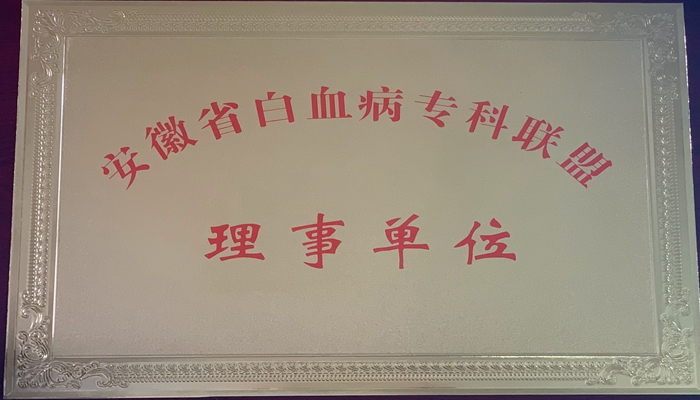 安徽省白血病专科联盟
理事单位